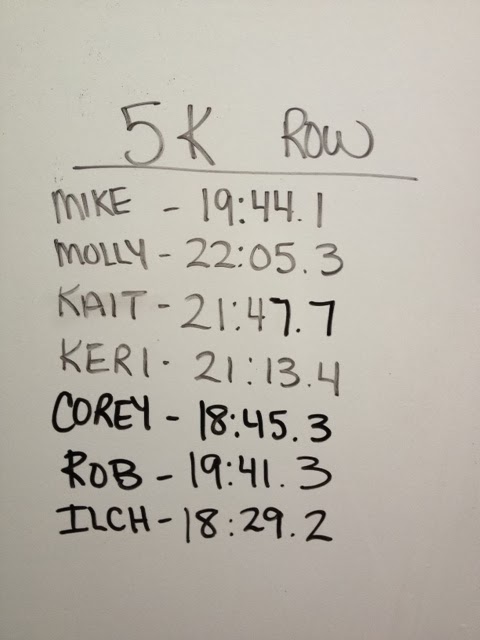 5K ROW
MIKE - 19:44.1
MOLLY - 22:05.3
KAIT - 21:47.7
KERI - 21:13.4
COREY - 18:45.3
ROB - 19:41.3
ILCH - 18:29.2